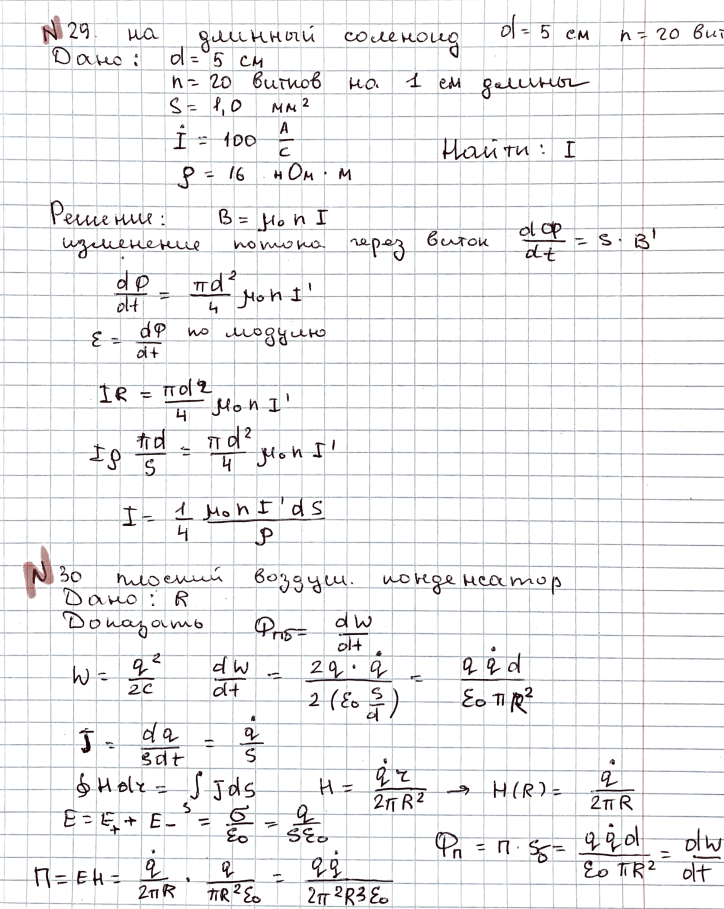 N 29. на длинный соленоид d = 5 см n = 20 вит
Дано: d = 5 см
n = 20 витков на 1 см длины
S = 1,0 мм²
İ = 100 А/с
Найти: I
ρ = 16 нОм · м
Решение: B = μ₀ n I
изменение потока через виток dФ/dt = S · B'
dФ/dt = πd²/4 μ₀ n I'
ε = dФ/dt по модулю
IR = πd²/4 μ₀ n I'
Iρ πd/S = πd²/4 μ₀ n I'
I = 1/4 μ₀ n I' d S/ρ
N 30 плоский воздуш. конденсатор
Дано: R
Доказать Фпδ = dW/dt
W = q²/2C dW/dt = 2q · q̇/2(ε₀ S/d) = q q̇ d/ε₀ πR²
J = dq/Sdt = q̇/S
∮ H dr = ∫ J dS H = q̇ r/2πR² → H(R) = q̇/2πR
E = E₊ + E₋ = σ/ε₀ = q/Sε₀
Фп = П · Sδ = q q̇ d/ε₀ πR² = dW/dt
П = EH = q̇/2πR · q/πR²ε₀ = q q̇/2π²R3ε₀